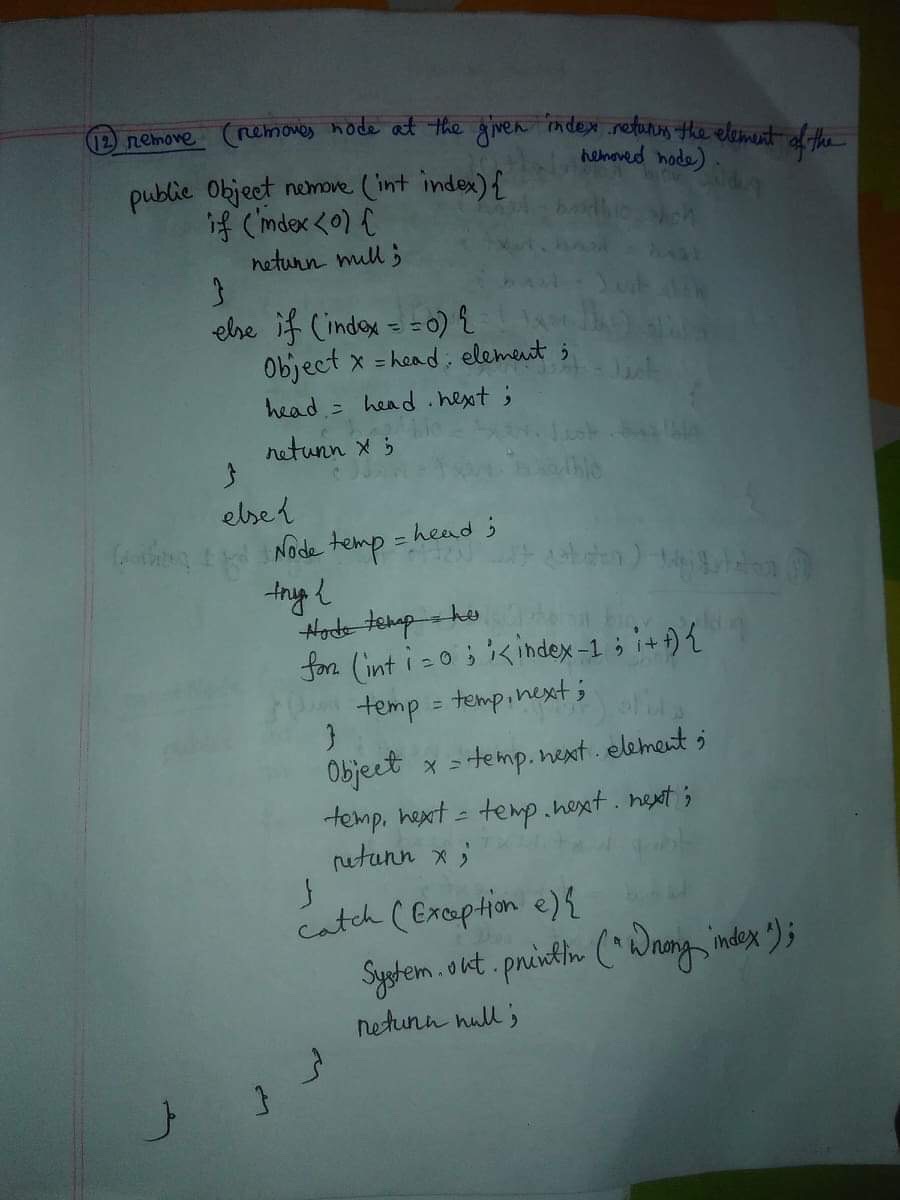 12 remove (removes node at the given index. returns the element of the removed node).
public Object remove (int index) {
if (index < 0) {
return null ;
}
else if (index = = 0) {
Object x = head . element ;
head = head . next ;
return x ;
}
else {
Node temp = head ;
try {
Node temp = he
for (int i = 0 ; i < index - 1 ; i + +) {
temp = temp . next ;
}
Object x = temp . next . element ;
temp . next = temp . next . next ;
return x ;
}
catch (Exception e) {
System . out . println ("Wrong index") ;
return null ;
}
}
}